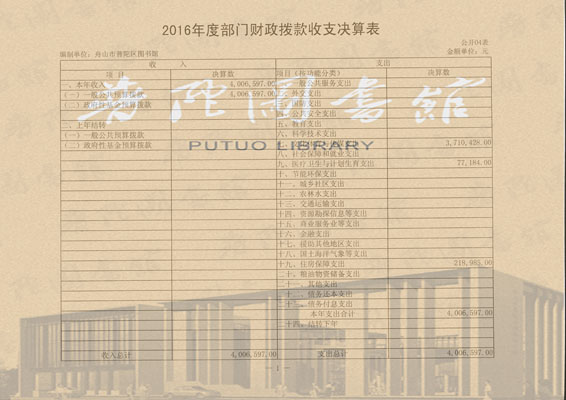 2016年度部门财政拨款收支决算表
公开04表
编制单位：舟山市普陀区图书馆 金额单位：元
收 入 支出
项 目 决算数 项目（按功能分类） 决算数
一、本年收入 4,006,597.00 一、一般公共服务支出
（一）一般公共预算拨款 4,006,597.00 二、外交支出
（二）政府性基金预算拨款 三、国防支出
四、公共安全支出
二、上年结转 五、教育支出
（一）一般公共预算拨款 六、科学技术支出
（二）政府性基金预算拨款 3,710,428.00
八、社会保障和就业支出
九、医疗卫生与计划生育支出 77,184.00
十、节能环保支出
十一、城乡社区支出
十二、农林水支出
十三、交通运输支出
十四、资源勘探信息等支出
十五、商业服务业等支出
十六、金融支出
十七、援助其他地区支出
十八、国土海洋气象等支出
十九、住房保障支出 218,985.00
二十、粮油物资储备支出
二十一、其他支出
二十二、债务还本支出
二十三、债务付息支出
本年支出合计 4,006,597.00
二十四、结转下年
收入总计 4,006,597.00 支出总计 4,006,597.00
— 1 —
普陀图书馆
PUTUO LIBRARY